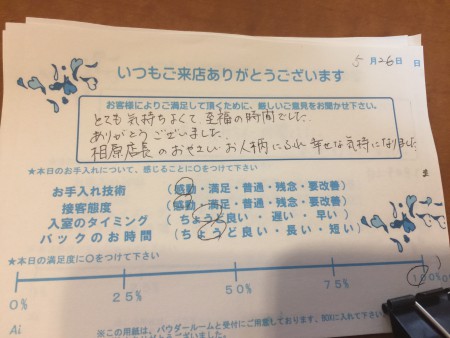 5月26日 日
いつもご来店ありがとうございます
お客様によりご満足して頂くために、厳しいご意見をお聞かせ下さい。
とても気持ちよくて、至福の時間でした。
ありがとうございました。
相原店長のおやさしいお人柄にふれ 幸せな気持になりました
★本日のお手入れについて、感じることに○をつけて下さい
お手入れ技術 (感動・満足・普通・残念・要改善)
接客態度 (感動・満足・普通・残念・要改善)
入室のタイミング (ちょうど良い・遅い・早い)
パックのお時間 (ちょうど良い・長い・短い)
★本日の満足度に○をつけて下さい
0% 25% 50% 75% 100%
Ai ※この用紙は、パウダールームと受付にご用意しております。BOXに入れて下さい
ありがとうございました。